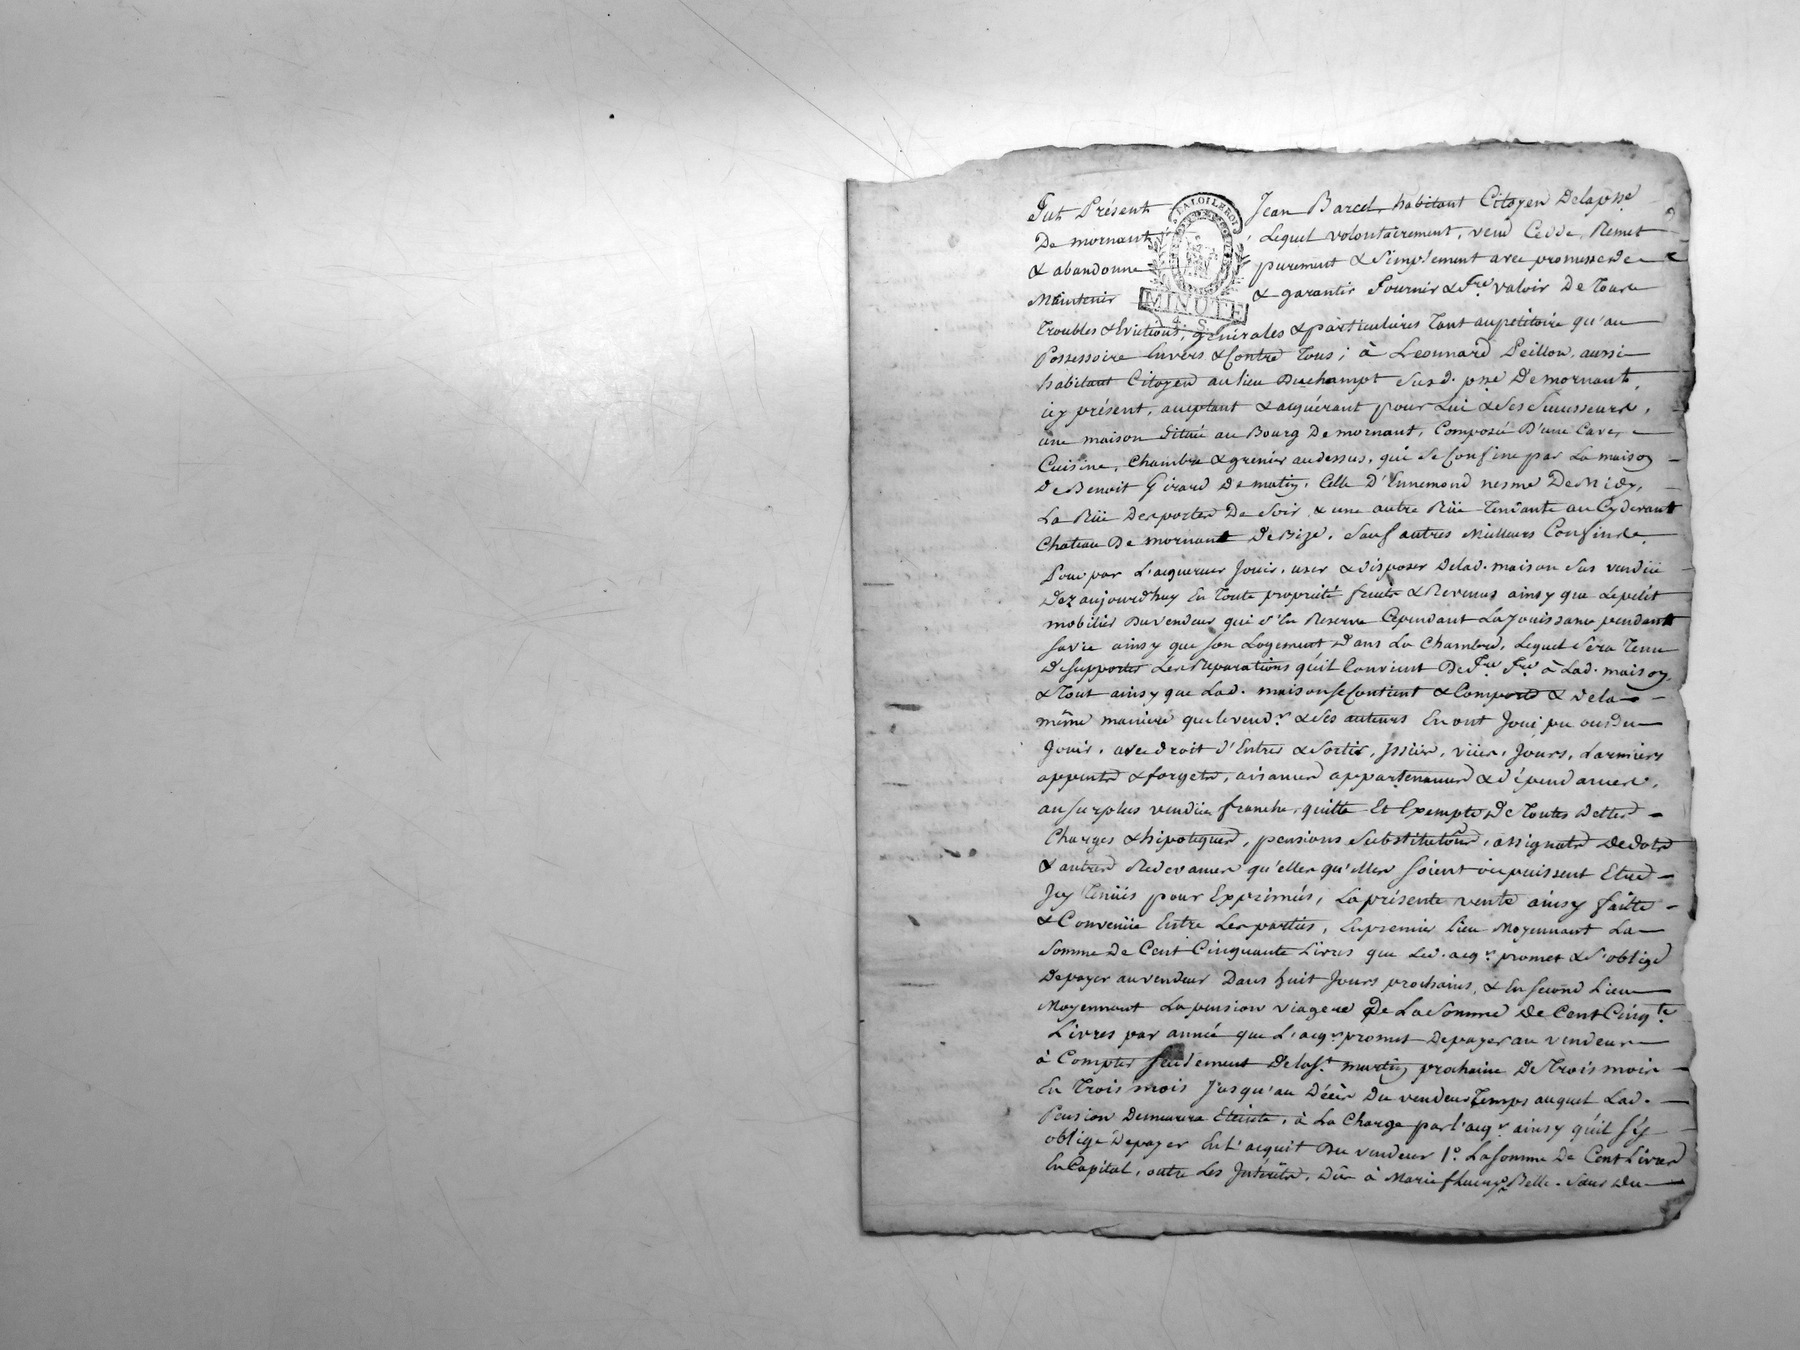 Fut Présent Jean Barcel, habitant Citoyen Delapsse
De mornant Lequel volontairement, vend Cedde, Remet
& abandonne purement & Simplement avec promesse de
Maintenir & garantir Fournir & Fre valoir De Tous
LA LOI LE ROI
MINUTE
4. S.
Troubles & Evictions, générales & particulieres Tant aupétitoire qu'au
Possessoire Envers & Contre Tous; à Leonnard Peillon, aussi
habitant Citoyen au lieu Duchampt Susd. psse De mornant,
icy présent, aceptant & acquérant pour Lui & Ses Successeurs,
une maison Située au Bourg De mornant, Composée D'une Cave,
Cuisine, Chambre & grenier audessus, qui Se Confine par La maison
De Benoit Girard De matin, Celle D'Ennemond nesme De Midy,
La Rüe Des portes De Soir & une autre Rüe Tendante au Cydevant
Chateau De mornant De Bize, Sauf autres Meilleurs Confins.
Pour par L'acquereur Jouir, user & disposer Delad. maison Sus vendüe
Dez aujourd'huy En Toute propriété fruits & Revenus ainsy que Lepetit
mobilier Duvendeur qui s'En Reserve Cependant La Jouissance pendant
Savie ainsy que Son Logement Dans La Chambre, Lequel Sera Tenu
De Supporter Les Réparations qu'il Convient De Fre Fre à Lad. maison,
& Tout ainsy que Lad. maison se Contient & Comporte & dela
même maniere que levendr & Ses auteurs En ont Joui, pu ou du
Jouir, avec droit d'Entrer & Sortir, Jssües, vües, Jours, Larmiers
appents & forgets, aisances appartenances & dépendances,
au Surplus vendüe franche, quitte Et Exempte De Toutes Dettes
Charges & hipoteques, pensions Substitutions, assignats De dots
& autres Redevances qu'elles qu'elles Soient ou puissent Etre
Jcy Tenües pour Exprimés, La présente vente ainsy faitte
& Convenüe Entre Les parties, En premier lieu Moyennant La
Somme De Cent Cinquante Livres que Led. acqr promet & S'oblige
Depayer au vendeur Dans huit Jours prochains, & En Second Lieu
Moyennant La pension viagere De La Somme De Cent Cinqte
Livres par année que L'acqr promet Depayer au vendeur
à Compter Seulement De la St martin prochaine De Trois mois
En Trois mois Jusqu'au Décès Du vendeur Temps auquel Lad.
Pension Demeurera Eteinte, à La Charge par l'acqr ainsy qu'il S'y
oblige Depayer En L'acquit Du vendeur 1° La Somme De Cent Livres
En Capital, outre Les Jntérêts, Dûe à Marie Belle. Sous Du